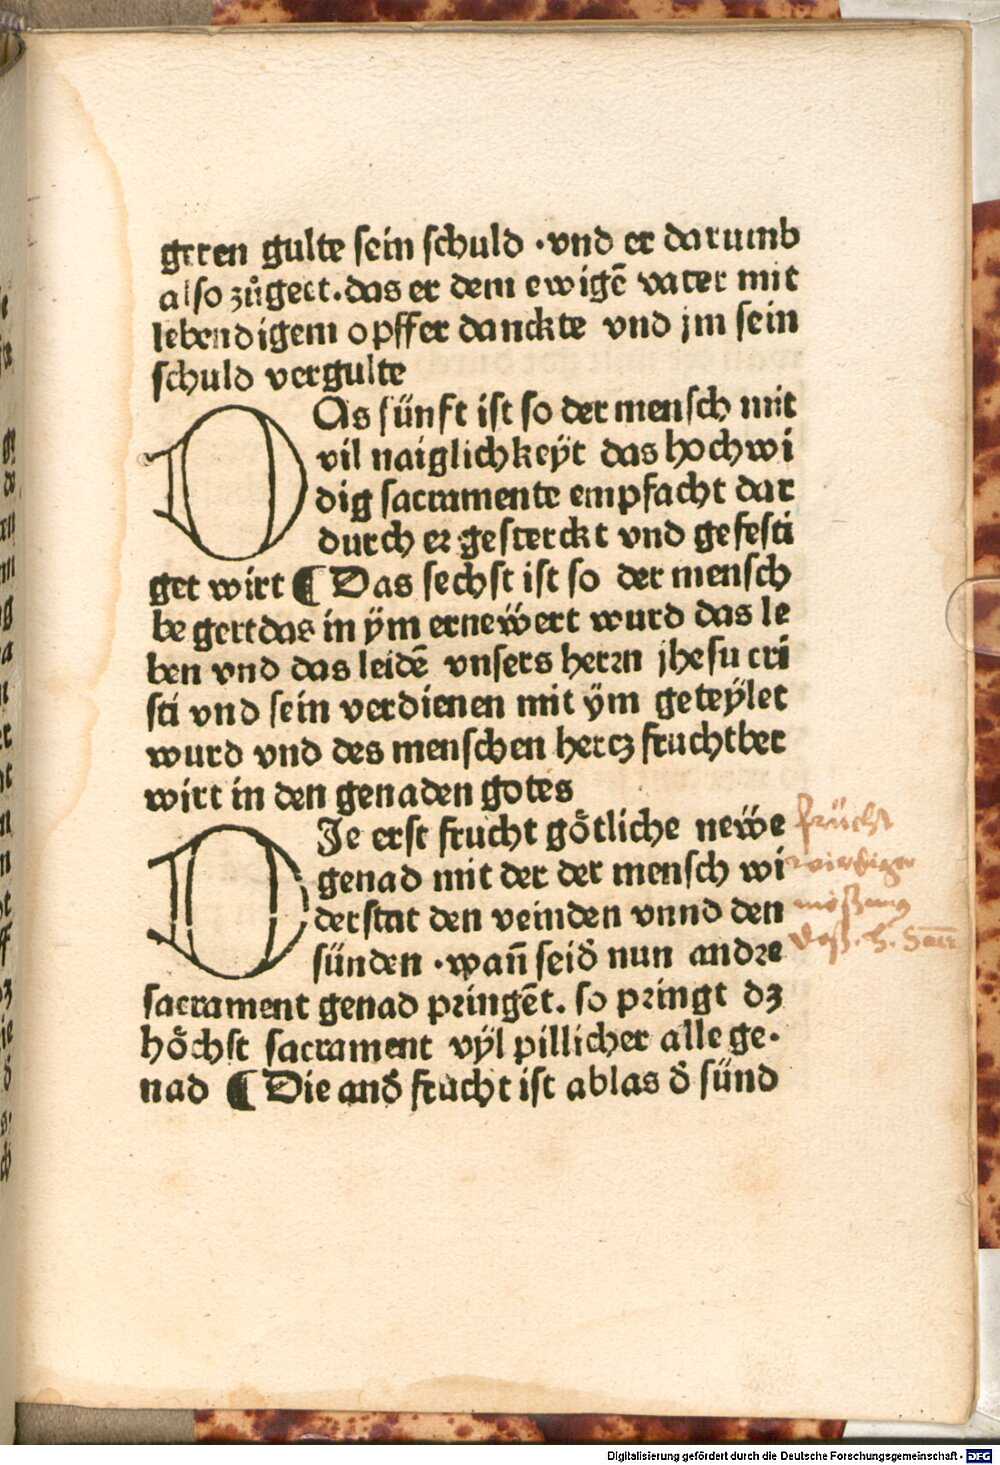 geren gulte sein schuld · vnd er darumb
also zůgeet. das er dem ewigē vater mit
lebendigem opffer danckte vnd jm sein
schuld vergulte
DAs fünft ist so der mensch mit
vil naiglichkeÿt das hochwi
dig sacramente empfacht dar
durch er gesterckt vnd gefesti
get wirt ¶ Das sechst ist so der mensch
begert das in ÿm ernewert wurd das le
ben vnd das leidē vnsers herrn jhesu cri
sti vnd sein verdienen mit ÿm geteÿlet
wurd vnd des menschen hercz fruchtber
wirt in den genaden gotes
DIe erst frucht götliche newe
genad mit der der mensch wi
derstat den veinden vnnd den
sünden · wañ seid nun andre
sacrament genad pringēt. so pringt dz
höchst sacrament vÿl pillicher alle ge·
nad ¶ Die and̄ frucht ist ablas d̄ sünd
frücht
wirdiger
nießung
deß. h. Sacr
Digitalisierung gefördert durch die Deutsche Forschungsgemeinschaft - DFG